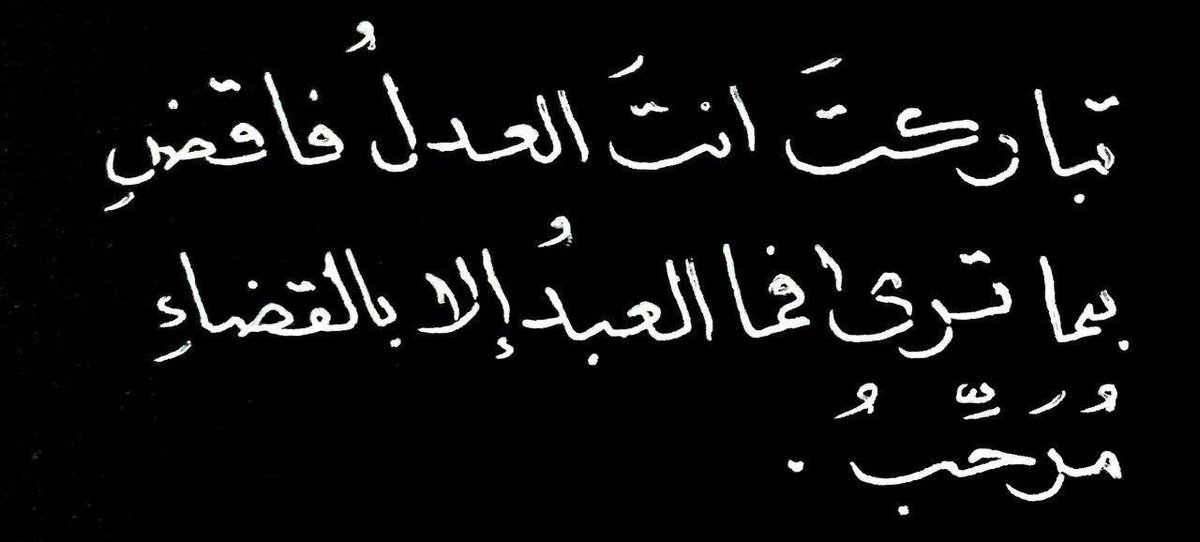 تباركتَ انتَ العدلُ فاقضِ
بما ترىٰ فما العبدُ إلا بالقضاءِ
مُرَحِّبُ .